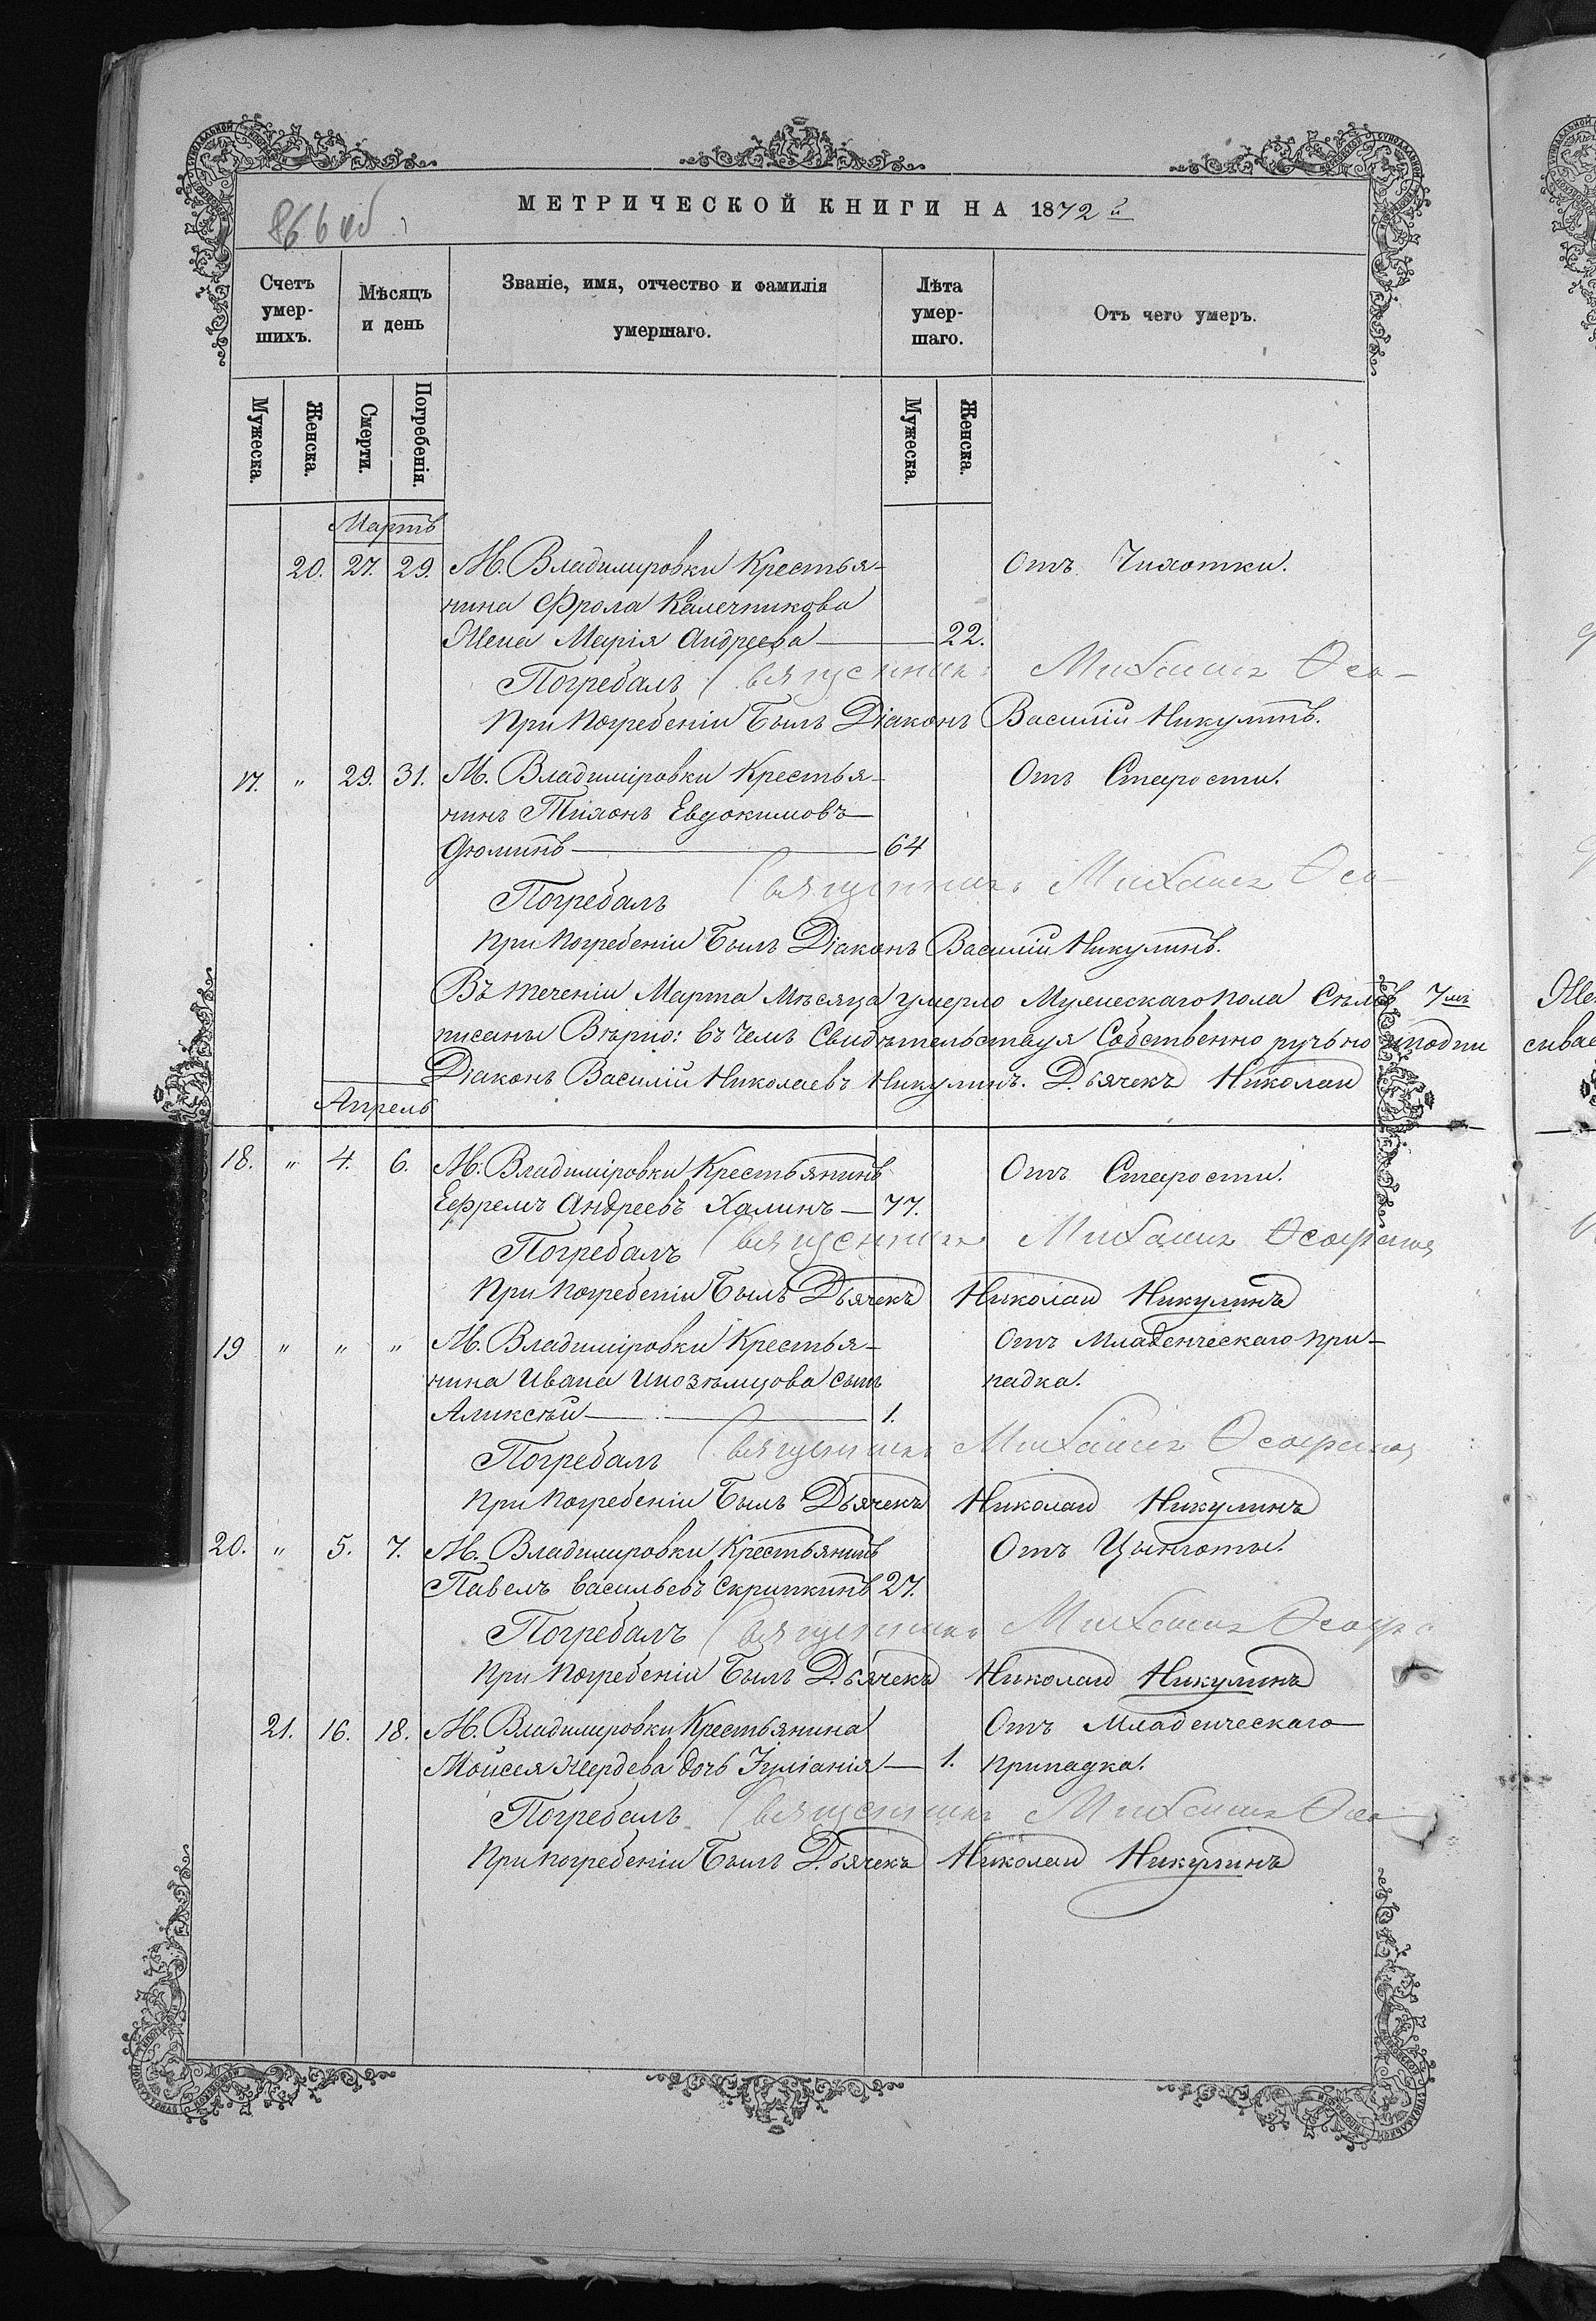 866 об
МЕТРИЧЕСКОЙ КНИГИ НА 1872 й
Счетъ умер-шихъ.
Мѣсяцъ и день
Званіе, имя, отчество и фамилія умершаго.
Лѣта умер-шаго.
Отъ чего умеръ.
Мужеска.
Женска.
Смерти.
Погребенія.
Мужеска.
Женска.
Мартъ
20. 27. 29. М. Владимировки Крестья- Отъ Чихотки.
нина Фрола Калечникова
Жена Марія Андреева 22.
Погребалъ Священникъ Михаилъ Ѳео-
При Погребеніи Былъ Діаконъ Василій Никулинъ.
17. " 29. 31. М. Владиміровки Крестья- Отъ Старости.
нинъ Тихонъ Евдокимовъ
Фоминъ 64
Погребалъ Священникъ Михаилъ Ѳео-
При Погребеніи Былъ Діаконъ Василій Никулинъ.
Въ теченіи Марта Мѣсяца умерло Мужескаго пола Сѣмь 7мь
писаны Вѣрно: въ Чемъ Свидѣтельствуя Собственно ручьно и подпи
Діаконъ Василій Николаевъ Никулинъ. Дьячекъ Николай
Апрель
18. " 4. 6. М. Владиміровки Крестьянинъ Отъ Старости.
Ефремъ Андреевъ Халинъ 77.
Погребалъ Священникъ Михаилъ Ѳеофанов
При Погребеніи Былъ Дьячекъ Николай Никулинъ
19 " " " М. Владиміровки Крестья- Отъ Младенческаго при-
нина Ивана Иноземцова сынъ падка.
Аликсѣй 1.
Погребалъ Священникъ Михаилъ Ѳеофанов
При Погребеніи Былъ Дьячекъ Николай Никулинъ
20. " 5. 7. М. Владимировки Крестьянинъ Отъ Цынготы.
Павелъ Васильевъ Скрипкинъ 27.
Погребалъ Священникъ Михаилъ Ѳеоф
При Погребеніи Былъ Дьячекъ Николай Никулинъ
21. 16. 18. М. Владимировки Крестьянина Отъ Младенческаго
Мойсея Жердева дочь Іуліанія 1. припадка.
Погребалъ Священникъ Михаилъ Ѳео
При погребеніи Былъ Дьячекъ Николай Никулинъ